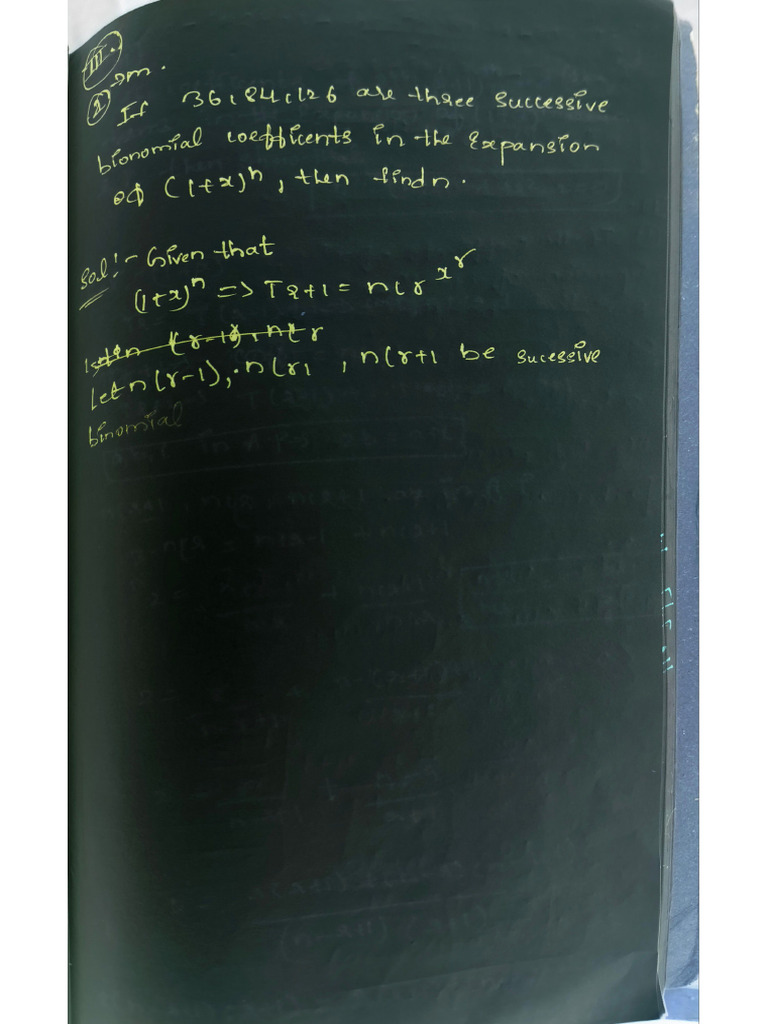 III.
1) → m.
If 36, 84, 126 are three successive
bionomial coefficents in the expansion
of (1+x)^n, then find n.
Sol:- Given that
(1+x)^n => Tr+1 = ncr x^r
Let n(r-1), n(r, n(r+1 be sucessive
binomial